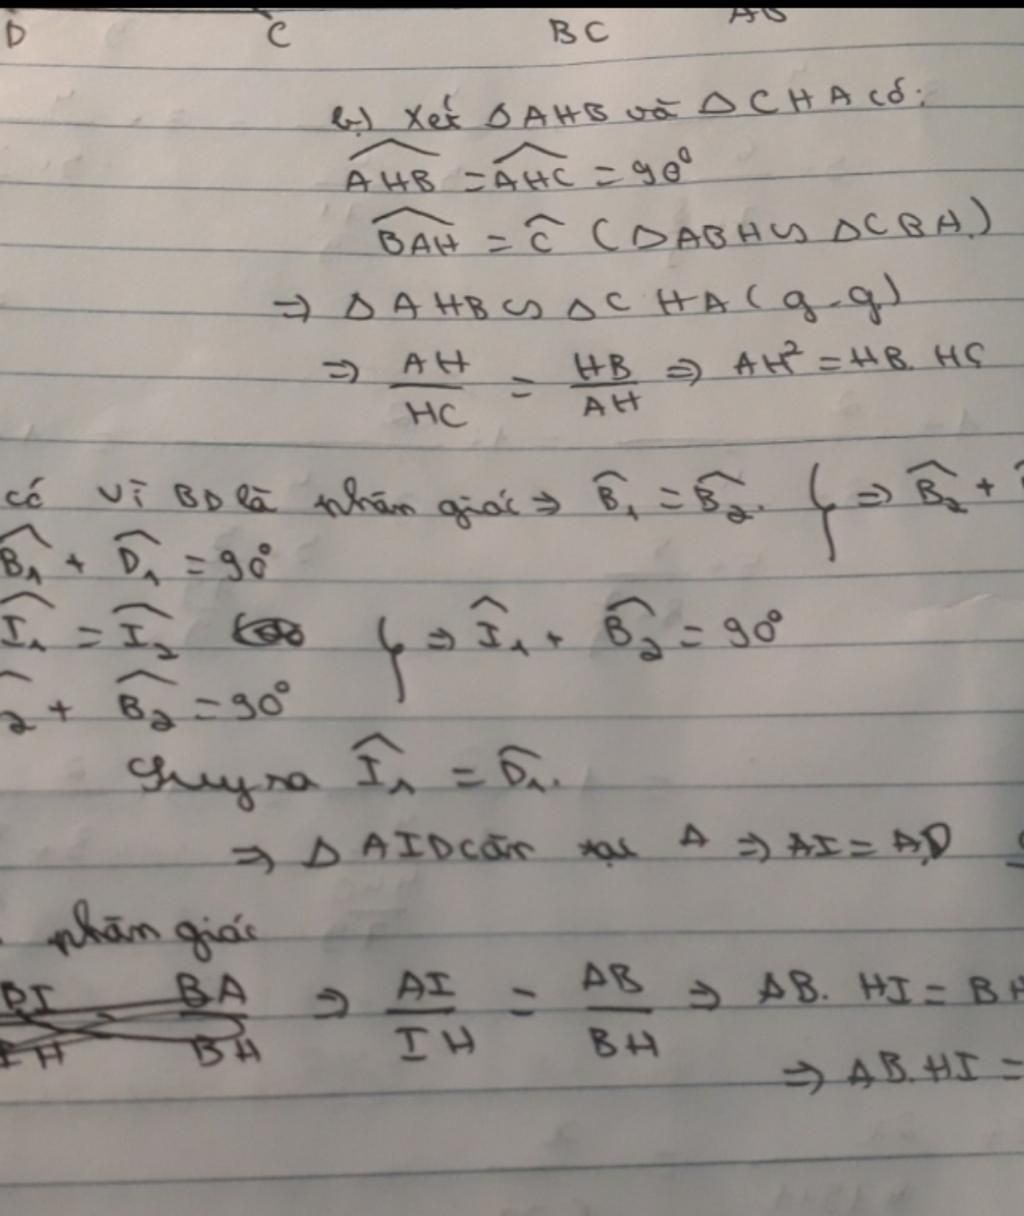 D C BC AB
b) Xét △AHB và △CHA có:
\widehat{AHB} = \widehat{AHC} = 90°
\widehat{BAH} = \widehat{C} (△ABH ∽ △CBA)
⇒ △AHB ∽ △CHA (g-g)
⇒ AH/HC = HB/AH ⇒ AH² = HB. HC
có vì BD là phân giác ⇒ \widehat{B}₁ = \widehat{B}₂. } ⇒ \widehat{B}₂ +
\widehat{B}₁ + \widehat{D}₁ = 90°
\widehat{I}₁ = \widehat{I}₂ } ⇒ \widehat{I}₁ + \widehat{B}₂ = 90°
₂ + \widehat{B}₂ = 90°
Suy ra \widehat{I}₁ = \widehat{D}₁.
⇒ △AID cân tại A ⇒ AI = AD
phân giác
BA/BH ⇒ AI/IH = AB/BH ⇒ AB. HI = BH
⇒ AB. HI =